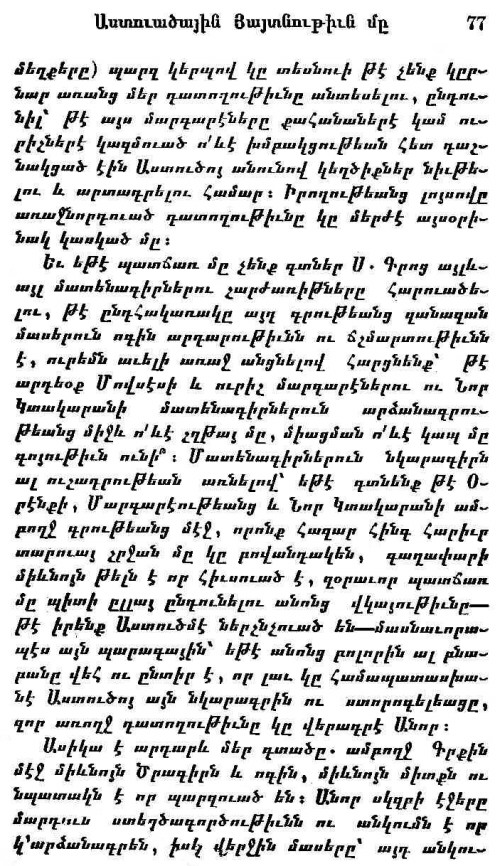 Աստուածային Յայտնութիւն մը 77
մեղքերը) պարզ կերպով կը տեսնուի թէ չենք կըր-
նար առանց մեր դատողութիւնը անտեսելու, ընդու-
նիլ՝ թէ այս մարդարէները քահանաներէ կամ ու-
րիչներէ կազմուած ո՛ևէ խմբակցութեան հետ դաշ-
նակցած էին Աստուծոյ անունով կեղծիքներ նիւթե-
լու և արտադրելու համար։ Իրողութեանց լոյսովը
առաջնորդուած դատողութիւնը կը մերժէ այսօրի-
նակ կասկած մը։
Եւ եթէ պատճառ մը չենք գտներ Ս. Գրոց այլև-
այլ մատենագիրներու չարժառիթները հարուածե-
լու, թէ ընդհակառակը այդ գրութեանց զանազան
մասերուն ոգին արդարութիւնն ու ճշմարտութիւնն
է, ուրեմն աւելի առաջ անցնելով հարցնենք՝ թէ
արդեօք Մովսէսի և ուրիշ մարգարէներու ու Նոր
Կտակարանի մատենագիրներուն արձանագրու-
թեանց միջև ո՛ևէ շղթայ մը, միացման ո՛ևէ կապ մը
գոյութիւն ունի՞։ Մատենագիրներուն նկարագիրն
ալ ուշադրութեան առնելով՝ եթէ գտնենք թէ Օ-
րէնքի, Մարգարէութեանց և Նոր Կտակարանի ամ-
բողջ գրութեանց մէջ, որոնք հազար հինգ հարիւր
տարուայ շրջան մը կը բովանդակեն, գաղափարի
միևնոյն թելն է որ հիւսուած է, զօրաւոր պատճառ
մը պիտի ըլլայ ընդունելու անոնց վկայութիւնը—
թէ իրենք Աստուծմէ ներշնչուած են—մասնաւորա-
պէս այն պարագային՝ եթէ անոնց բոլորին ալ բնա-
բանը վեհ ու ընտիր է, որ լաւ կը համապատասխա-
նէ Աստուծոյ այն նկարագրին ու ստորոգելեացը,
զոր առողջ դատողութիւնը կը վերագրէ Անոր։
Ասիկա է արդարև մեր գտածը. ամբողջ Գրքին
մէջ միևնոյն Ծրագիրն և ոգին, միևնոյն միտքն ու
նպատակն է որ պարզուած են։ Անոր սկզբի էջերը
մարդուն ստեղծագործութիւնն ու անկումն է որ
կ՚արձանագրեն, իսկ վերջին մասերը՝ այդ անկու-